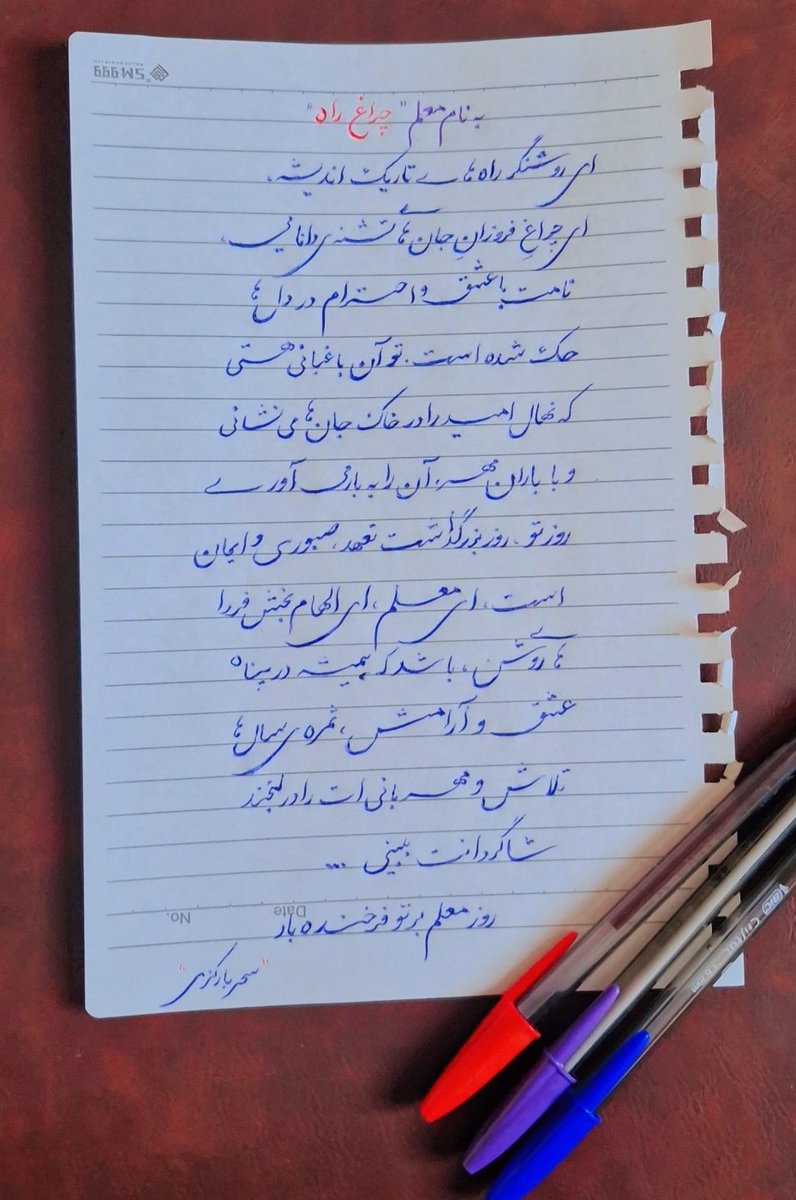 به نام معلم "چراغ راه"
ای روشنگر راه های تاریک اندیشه،
ای چراغِ فروزانِ جان های تشنه ی دانایی،
نامت با عشق و احترام در دل ها
حک شده است. تو آن باغبانی هستی
که نهال امید را در خاک جان ها می نشانی
و با باران مهر، آن را به بار می آوری
روز تو، روز بزرگداشت تعهد، صبوری و ایمان
است، ای معلم، ای الهام بخش فردا
های روشن، باشد که همیشه در پناه
عشق و آرامش، ثمره ی سال ها
تلاش و مهربانی ات را در لبخند
شاگردانت ببینی ...
روز معلم بر تو فرخنده باد
"سحر بارکزی"
SM999
Date
No.